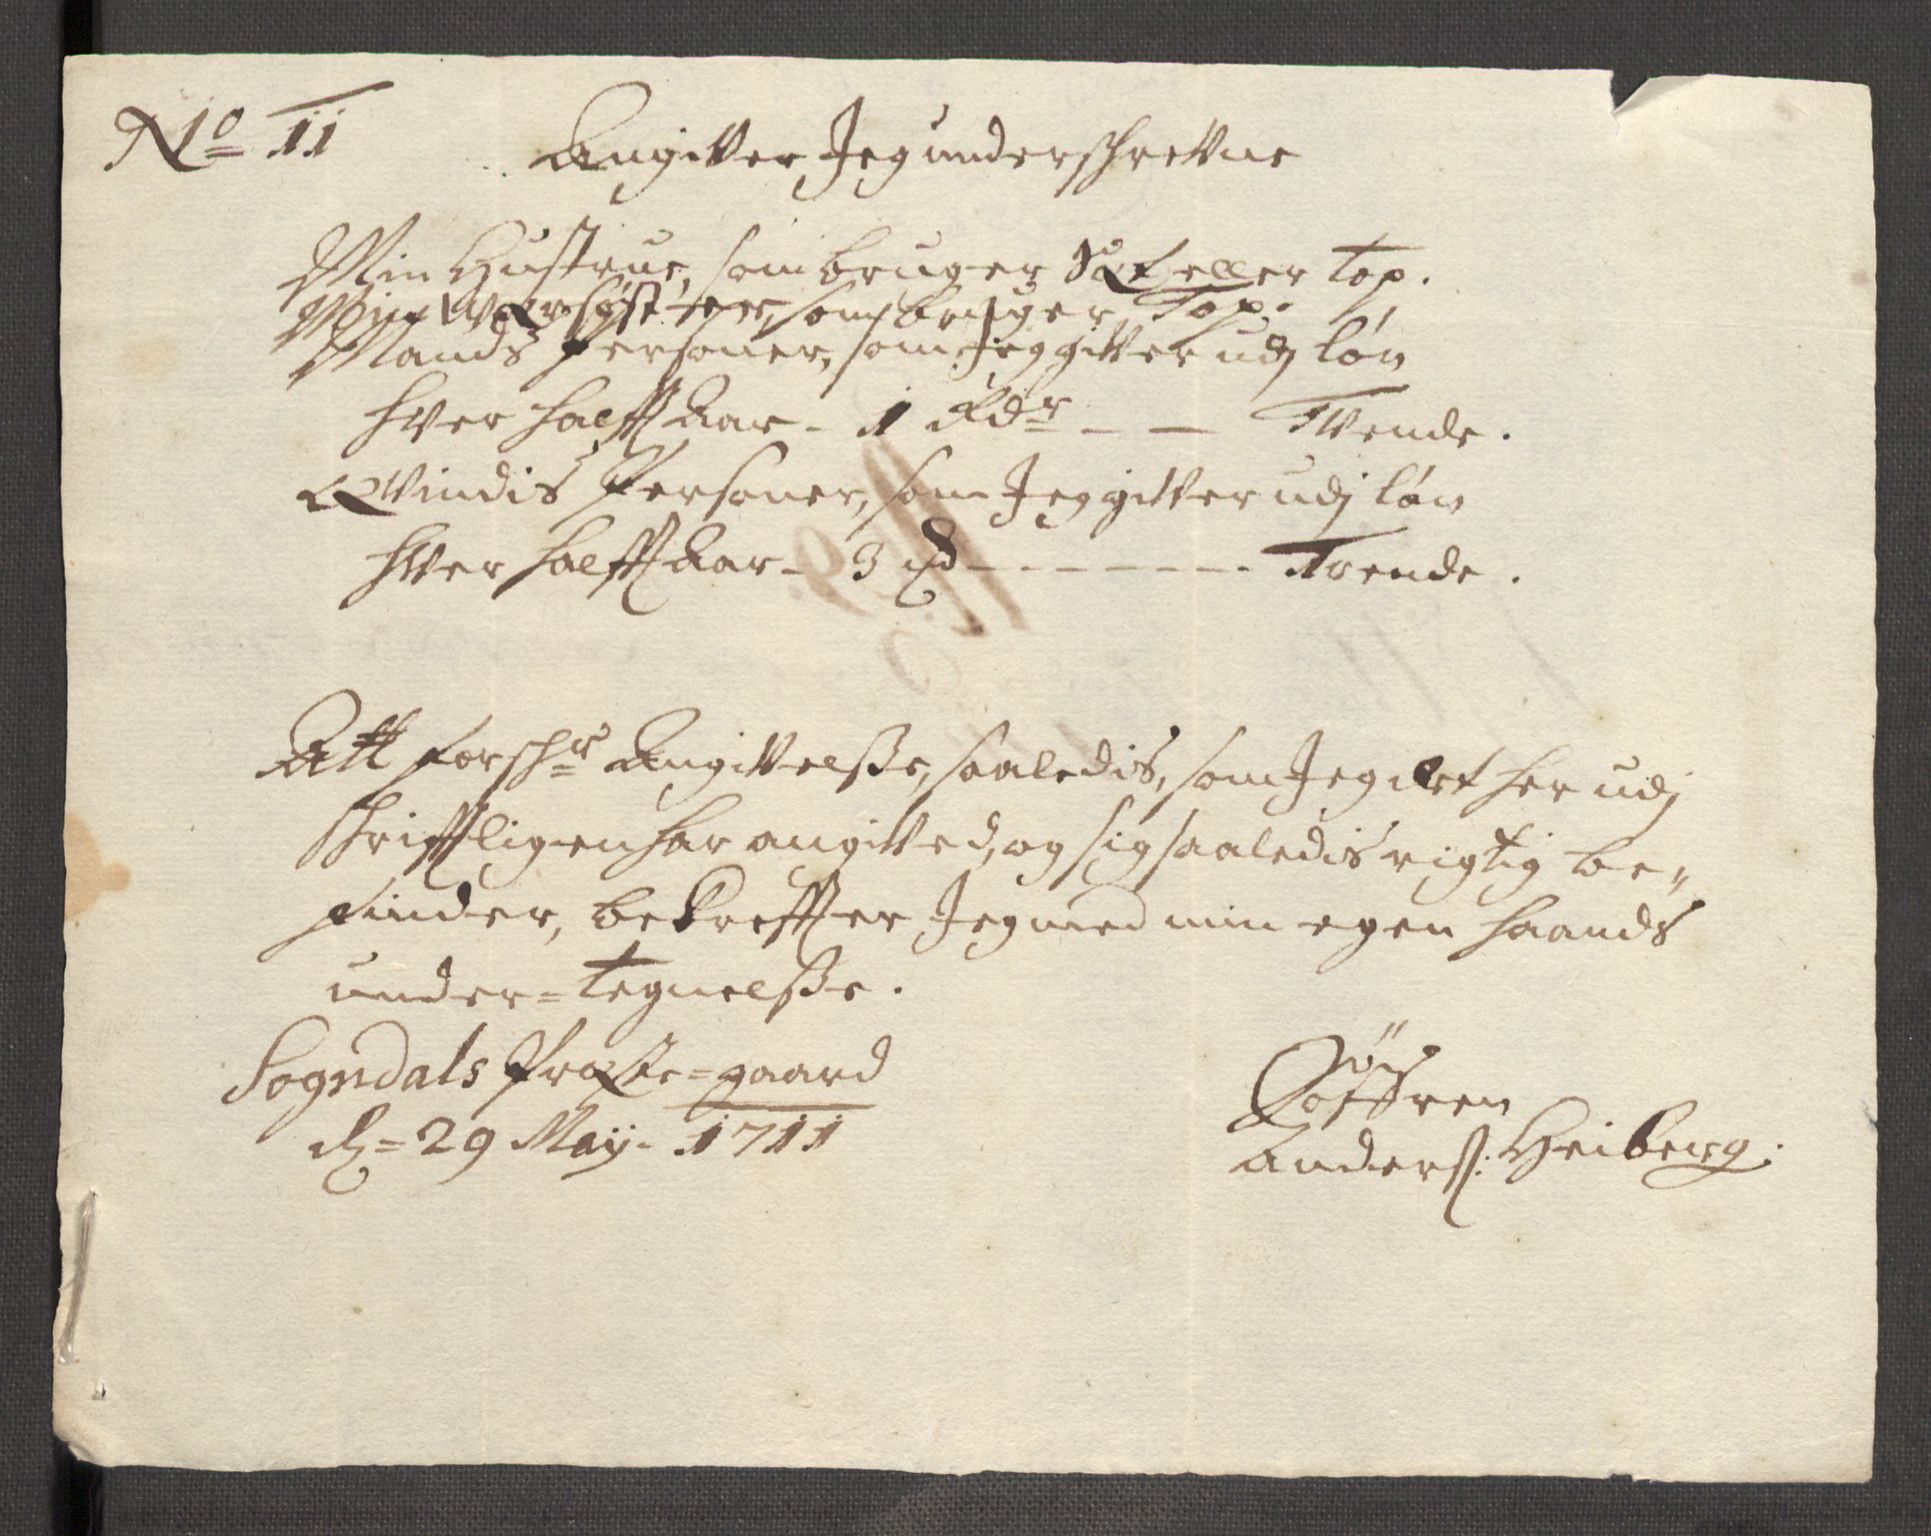 No 11
Angitver Jeg underschrettne
Min Hustrue, som bruger Sæt eller top.
Min Wærsøster, som bruger Top.
Mands Personer, som Jeg gitver udj løn
hver halff Aar - 1 Rdr - - Tvende.
Qvindis Personer, som Jeg gitver udj løn
hver halff Aar - 3 - - - - - - - Trende.
Att forschr Angitvelsse, saaledis, som Jeg det her udj
schrifftligen har angitved, og sig saaledis rigtig be-
finder, bekreffter Jeg med min egen haands
under=tegnelsse.
Sogndals Præste=gaard
d. = 29 Maij - 1711
Søffren
Anderss: Heiberg.